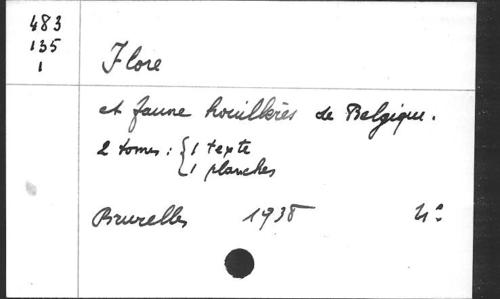 483
135
1
Flore
et faune houillères de Belgique.
2 tomes : { 1 texte
1 planches
Bruxelles 1938 4°